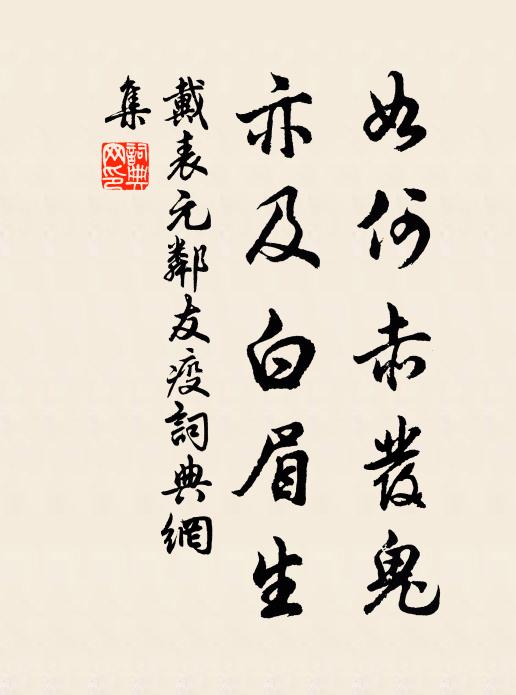 如何赤發鬼
亦及白眉生
戴表元鄰友疫詞典網
集
詞典
网印